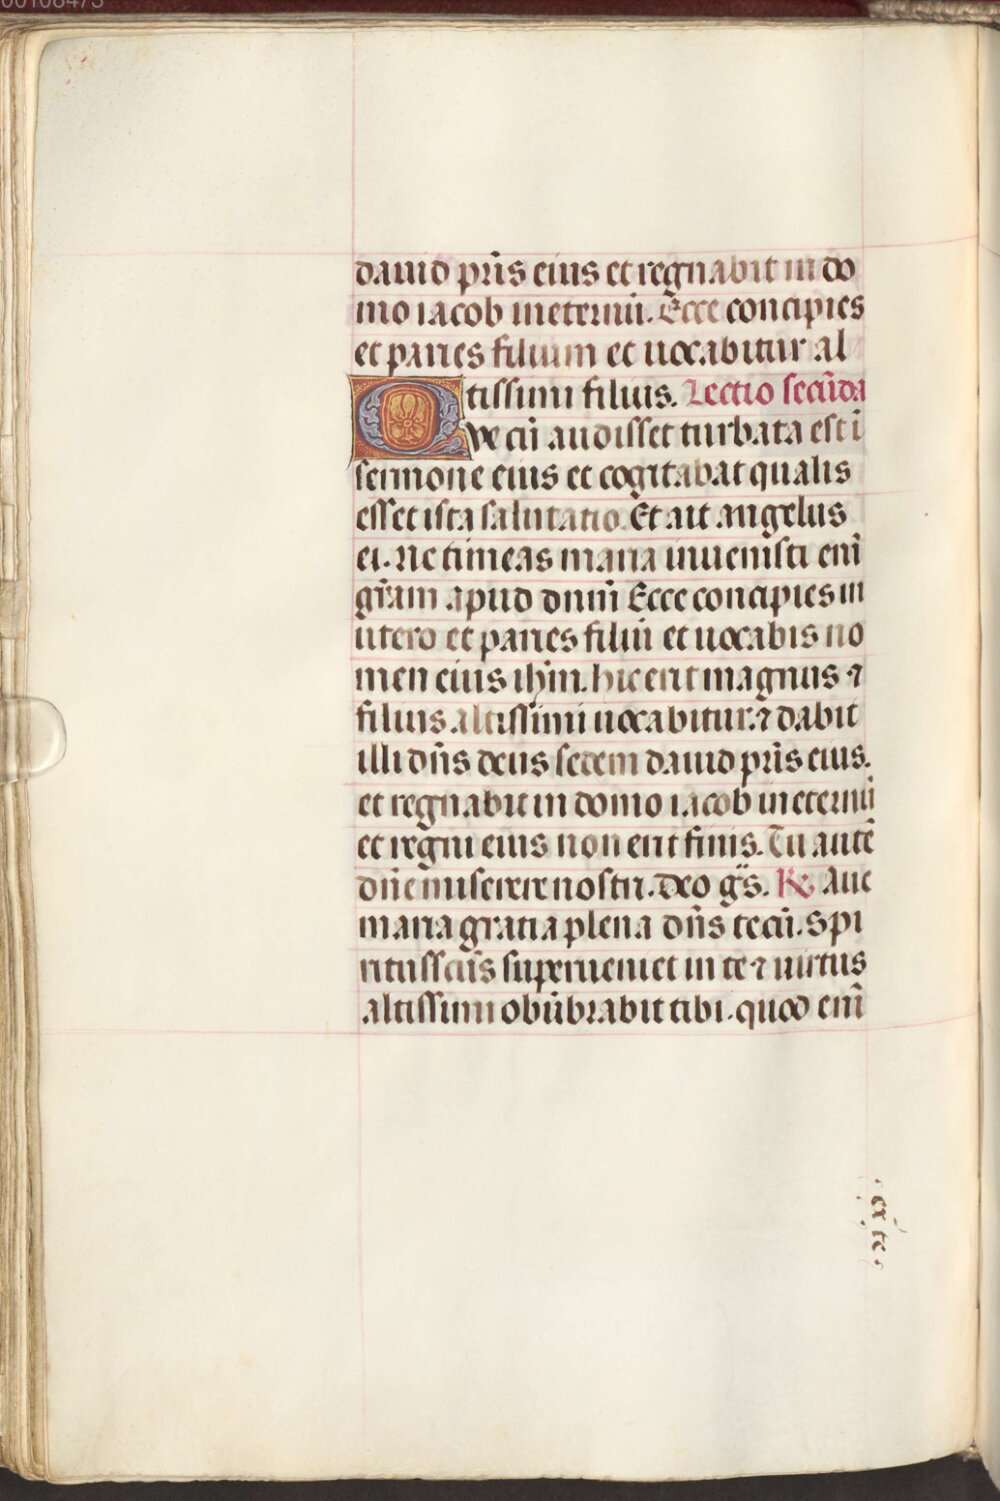 dauid pr̃is eius et regnabit in do
mo iacob ineternũ. Ecce concipies
et paries filium et uocabitur al
tissimi filius. Lectio secũda
Qve cũ audisset turbata est ĩ
sermone eius et cogitabat qualis
esset ista salutatio. Et ait angelus
ei. Ne timeas maria inuenisti eñi
gr̃am apud dnm̃ Ecce concipies in
utero et paries filiũ et uocabis no
men eius ihm̃. hic erit magnus ⁊
filius altissimi uocabitur. ⁊ dabit
illi dñs deus sedem dauid pr̃is eius.
et regnabit in domo iacob in eternũ
et regni eius non erit finis. Tu autẽ
dñe miserere nostri. deo gr̃s. ℟ Aue
maria gratia plena dñs tecũ. spi
ritus sc̃us superueniet in te ⁊ uirtus
altissimi obũbrabit tibi. quod eñi
ex te